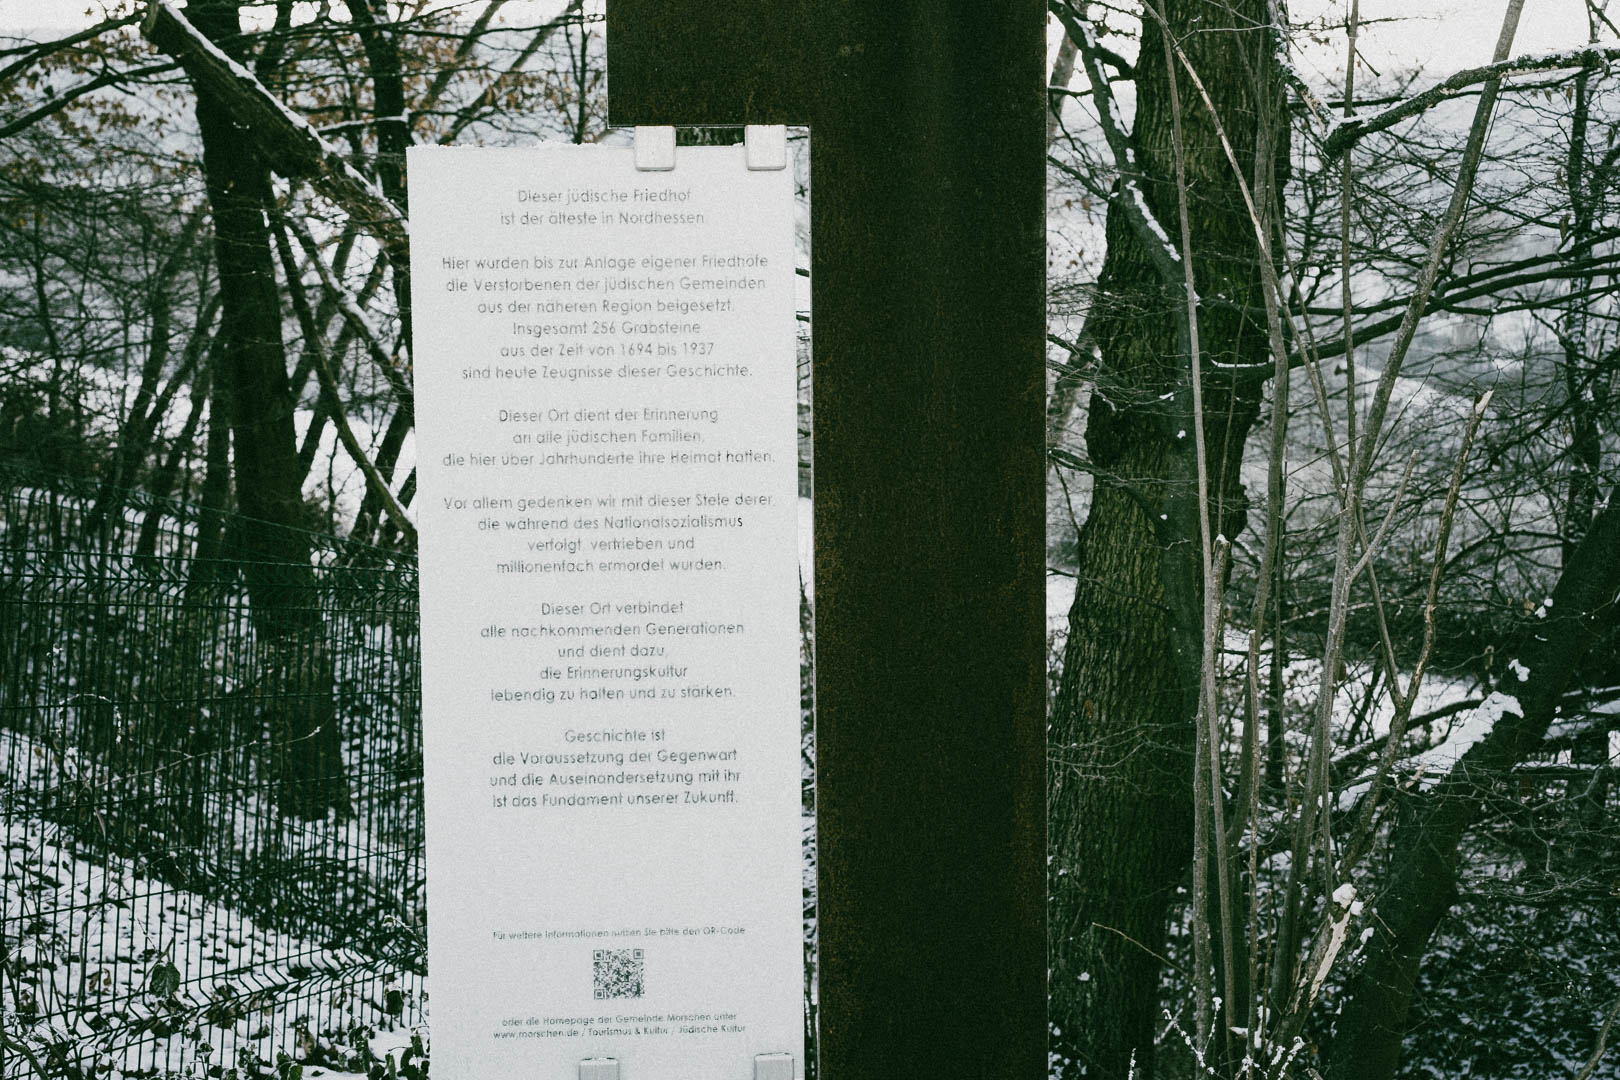 Dieser jüdische Friedhof
ist der älteste in Nordhessen
Hier wurden bis zur Anlage eigener Friedhöfe
die Verstorbenen der jüdischen Gemeinden
aus der näheren Region beigesetzt.
Insgesamt 256 Grabsteine
aus der Zeit von 1694 bis 1937
sind heute Zeugnisse dieser Geschichte.
Dieser Ort dient der Erinnerung
an alle jüdischen Familien,
die hier über Jahrhunderte ihre Heimat hatten.
Vor allem gedenken wir mit dieser Stele derer,
die während des Nationalsozialismus
verfolgt, vertrieben und
millionenfach ermordet wurden.
Dieser Ort verbindet
alle nachkommenden Generationen
und dient dazu,
die Erinnerungskultur
lebendig zu halten und zu stärken.
Geschichte ist
die Voraussetzung der Gegenwart
und die Auseinandersetzung mit ihr
ist das Fundament unserer Zukunft.
Für weitere Informationen nutzen Sie bitte den QR-Code
oder die Homepage der Gemeinde Morschen unter
www.morschen.de / Tourismus & Kultur / Jüdische Kultur